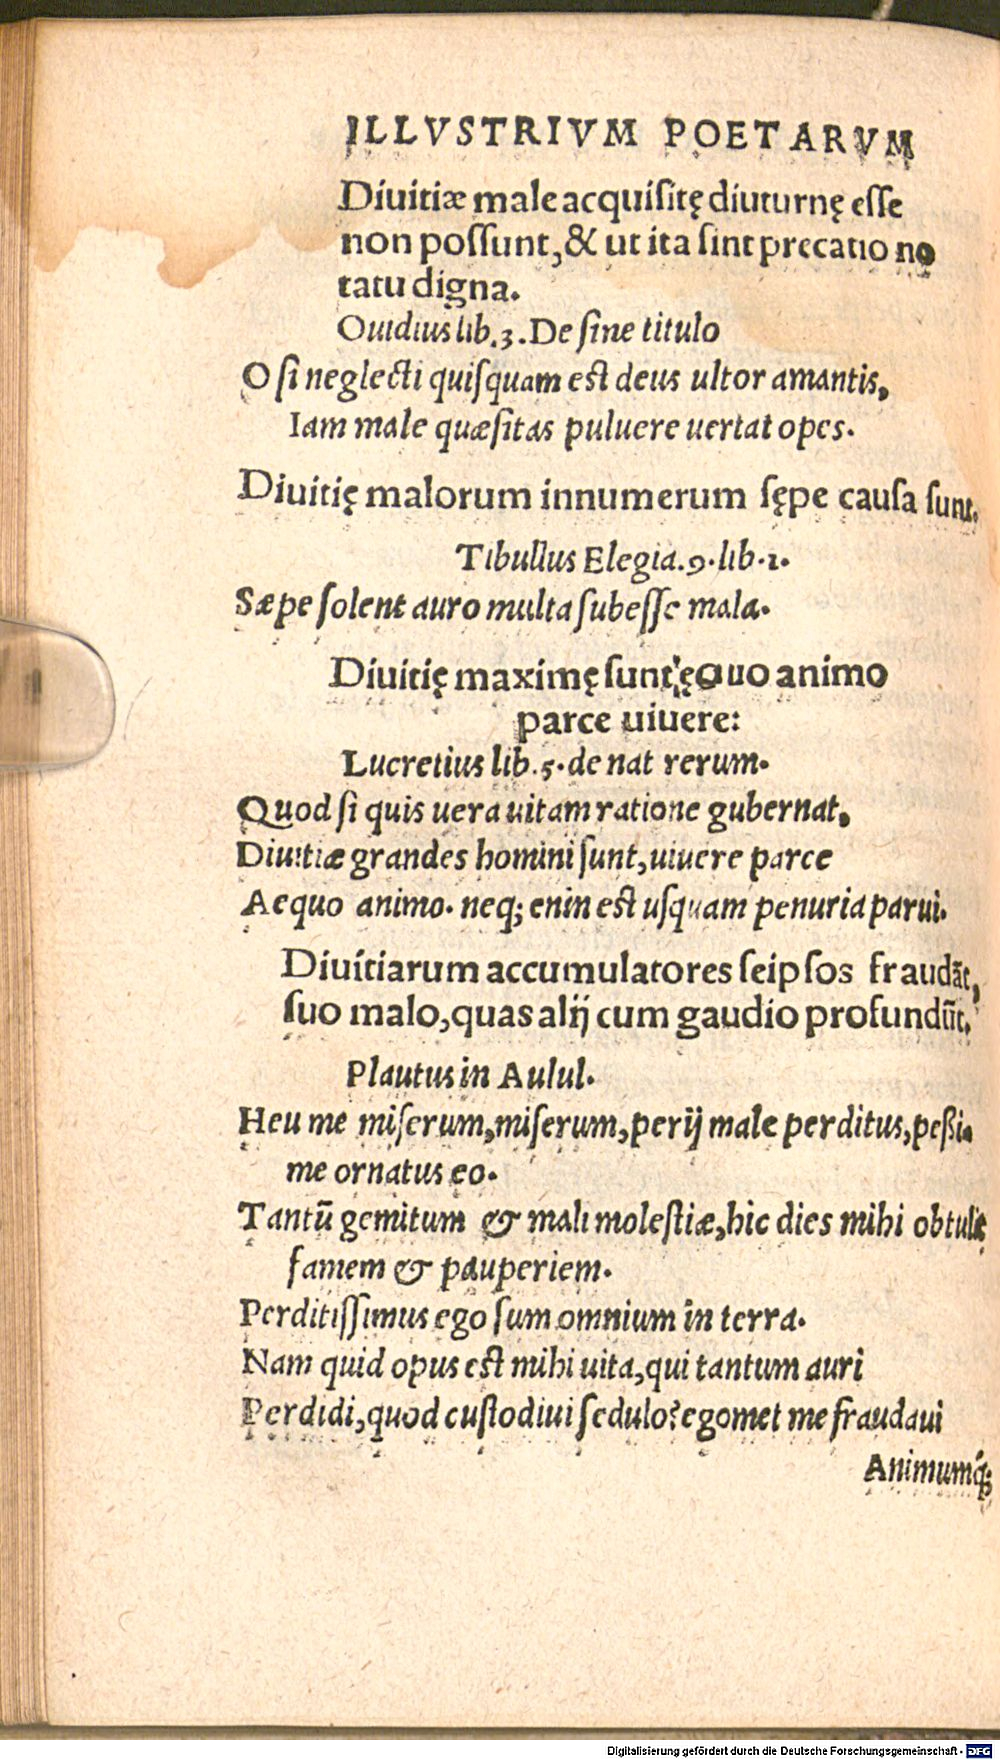 ILLVSTRIVM POETARVM
Diuitiæ male acquisitę diuturnę esse
non possunt, & ut ita sint precatio no
tatu digna.
Ouidius lib.3. De sine titulo
O si neglecti quisquam est deus ultor amantis,
Iam male quæsitas puluere uertat opes.
Diuitię malorum innumerum sępe causa sunt.
Tibullus Elegia.9.lib.1.
Sæpe solent auro multa subesse mala.
Diuitię maximę sunt ęquo animo
parce uiuere:
Lucretius lib.5.de nat rerum.
Quod si quis uera uitam ratione gubernat,
Diuitiæ grandes homini sunt, uiuere parce
Aequo animo. neq; enin est usquam penuria parui.
Diuitiarum accumulatores seipsos fraudāt,
suo malo, quas alij cum gaudio profundūt.
Plautus in Aulul.
Heu me miserum, miserum, perij male perditus, pessi
me ornatus eo.
Tantū gemitum & mali molestiæ, hic dies mihi obtulit
famem & pauperiem.
Perditissimus ego sum omnium in terra.
Nam quid opus est mihi uita, qui tantum auri
Perdidi, quod custodiui sedulo? egomet me fraudaui
Animumq́;
Digitalisierung gefördert durch die Deutsche Forschungsgemeinschaft - DFG